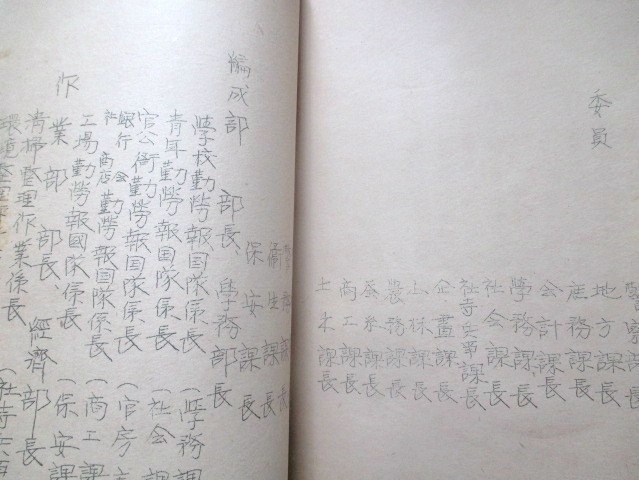 委員
地方課長
庶務課長
会計課長
社会課長
學務課長
社寺兵事課長
企畫課長
山林課長
農務課長
蚕糸課長
商工課長
土木課長
衛生課長
保安課長
編成部 部長、學務部長
學校勤勞報国隊係長 (學務課
青年勤勞報国隊係長 (社会課
官公衙勤勞報国隊係長 (官房
銀行会社商店勤勞報国隊係長 (商工課
工場勤勞報國隊係長 (保安課
作業部 部長、經濟部長
清掃整理作業係長 (社寺兵事